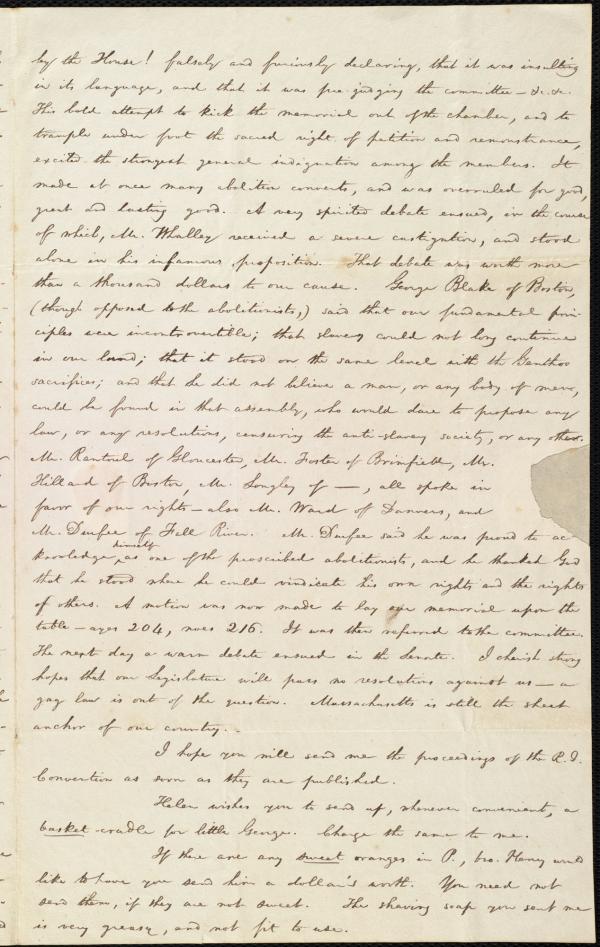 by the House! falsely and furiously declaring, that it was insulting
in its language, and that it was pre-judging the committee — &c. &c.
This bold attempt to kick the memorial out of the chamber, and to
trample under foot the sacred right of petition and remonstrance,
excited the strongest general indignation among the members. It
made at once many abolition converts, and was overruled for good,
great and lasting good. A very spirited debate ensued, in the course
of which, Mr. Whalley received a severe castigation, and stood
alone in his infamous proposition. That debate was worth more
than a thousand dollars to our cause. George Blake of Boston,
(though opposed to the abolitionists,) said that our fundamental prin-
ciples were incontrovertible; that slavery could not long continue
in our land; that it stood on the same level with the Genthoo
sacrifices; and that he did not believe a man, or any body of men,
could be found in that assembly, who would dare to propose any
law, or any resolutions, censuring the anti-slavery society, or any other.
Mr. Rantoul of Gloucester, Mr. Foster of Brimfield, Mr.
Hillard of Boston, Mr. Longley of —, all spoke in
favor of our rights — also Mr. Ward of Danvers, and
Mr. Durfee of Fall River. Mr. Durfee said he was proud to ac-
knowledge himself as one of the proscribed abolitionists, and he thanked God
that he stood where he could vindicate his own rights and the rights
of others. A motion was now made to lay our memorial upon the
table — ayes 204, noes 216. It was then referred to the committee.
The next day a warm debate ensued in the Senate. I cherish strong
hopes that our Legislature will pass no resolutions against us — a
gag law is out of the question. Massachusetts is still the sheet
anchor of our country.
I hope you will send me the proceedings of the R. I.
Convention as soon as they are published.
Helen wishes you to send up, whenever convenient, a
basket-cradle for little George. Charge the same to me.
If there are any sweet oranges in P., bro. Henry would
like to have you send him a dollar's worth. You need not
send them, if they are not sweet. The shaving soap you sent me
is very greasy, and not fit to use.